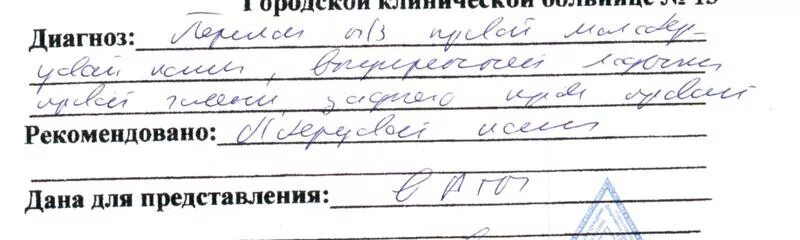 Городской клинической больнице № 13
Диагноз: Перелом н/з правой малоберцовой кости, внутренней лодыжки
правой голени, заднего края правой
Рекомендовано: б/берцовой кости
Дана для представления: в